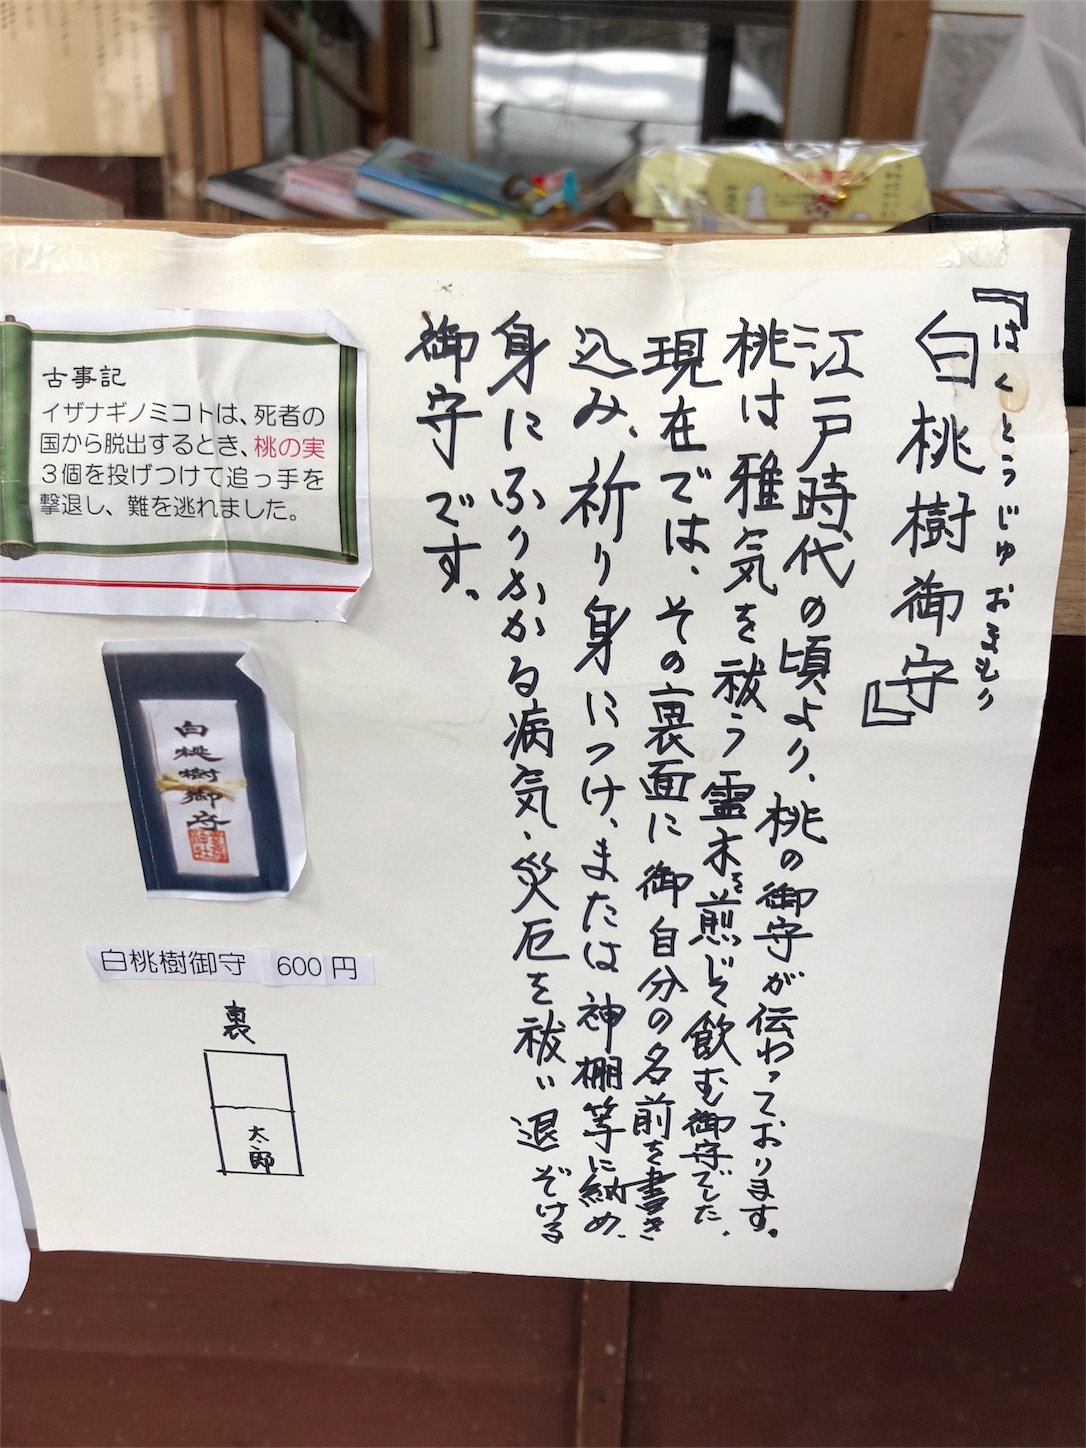 『はくとうじゅおまもり
白桃樹御守』
江戸時代の頃より、桃の御守が伝わっております。
桃は雅気を祓う霊木を煎じて飲む御守でした。
現在では、その裏面に御自分の名前を書き
込み、祈り身につけ、または神棚等に納め、
身にふりかかる病気・災厄を祓い退ぞける
御守です。
古事記
イザナギノミコトは、死者の
国から脱出するとき、桃の実
3個を投げつけて追っ手を
撃退し、難を逃れました。
白桃樹御守
白桃樹御守 600円
裏
太郎